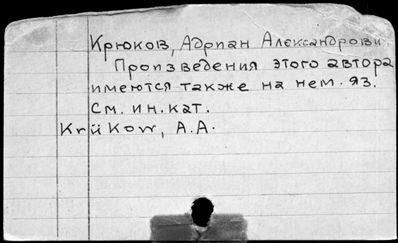 Крюков, Адриан Александрови
Произведения этого автора
имеются также на нем. яз.
См. ин. кат.
Krükow, A.A.